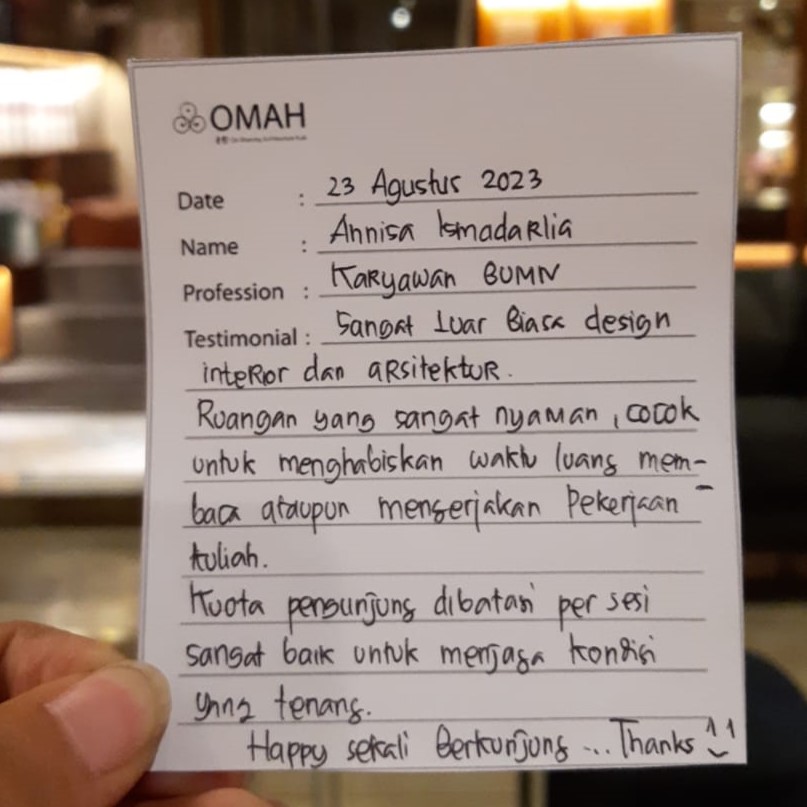 OMAH
Date : 23 Agustus 2023
Name : Annisa Ismadarlia
Profession : Karyawan BUMN
Testimonial : Sangat Luar Biasa design
interior dan arsitektur.
Ruangan yang sangat nyaman, cocok
untuk menghabiskan waktu luang mem-
baca ataupun mengerjakan Pekerjaan -
kuliah.
Kuota pengunjung dibatasi per sesi
sangat baik untuk menjaga kondisi
yang tenang.
Happy sekali Berkunjung ... Thanks ^‿^